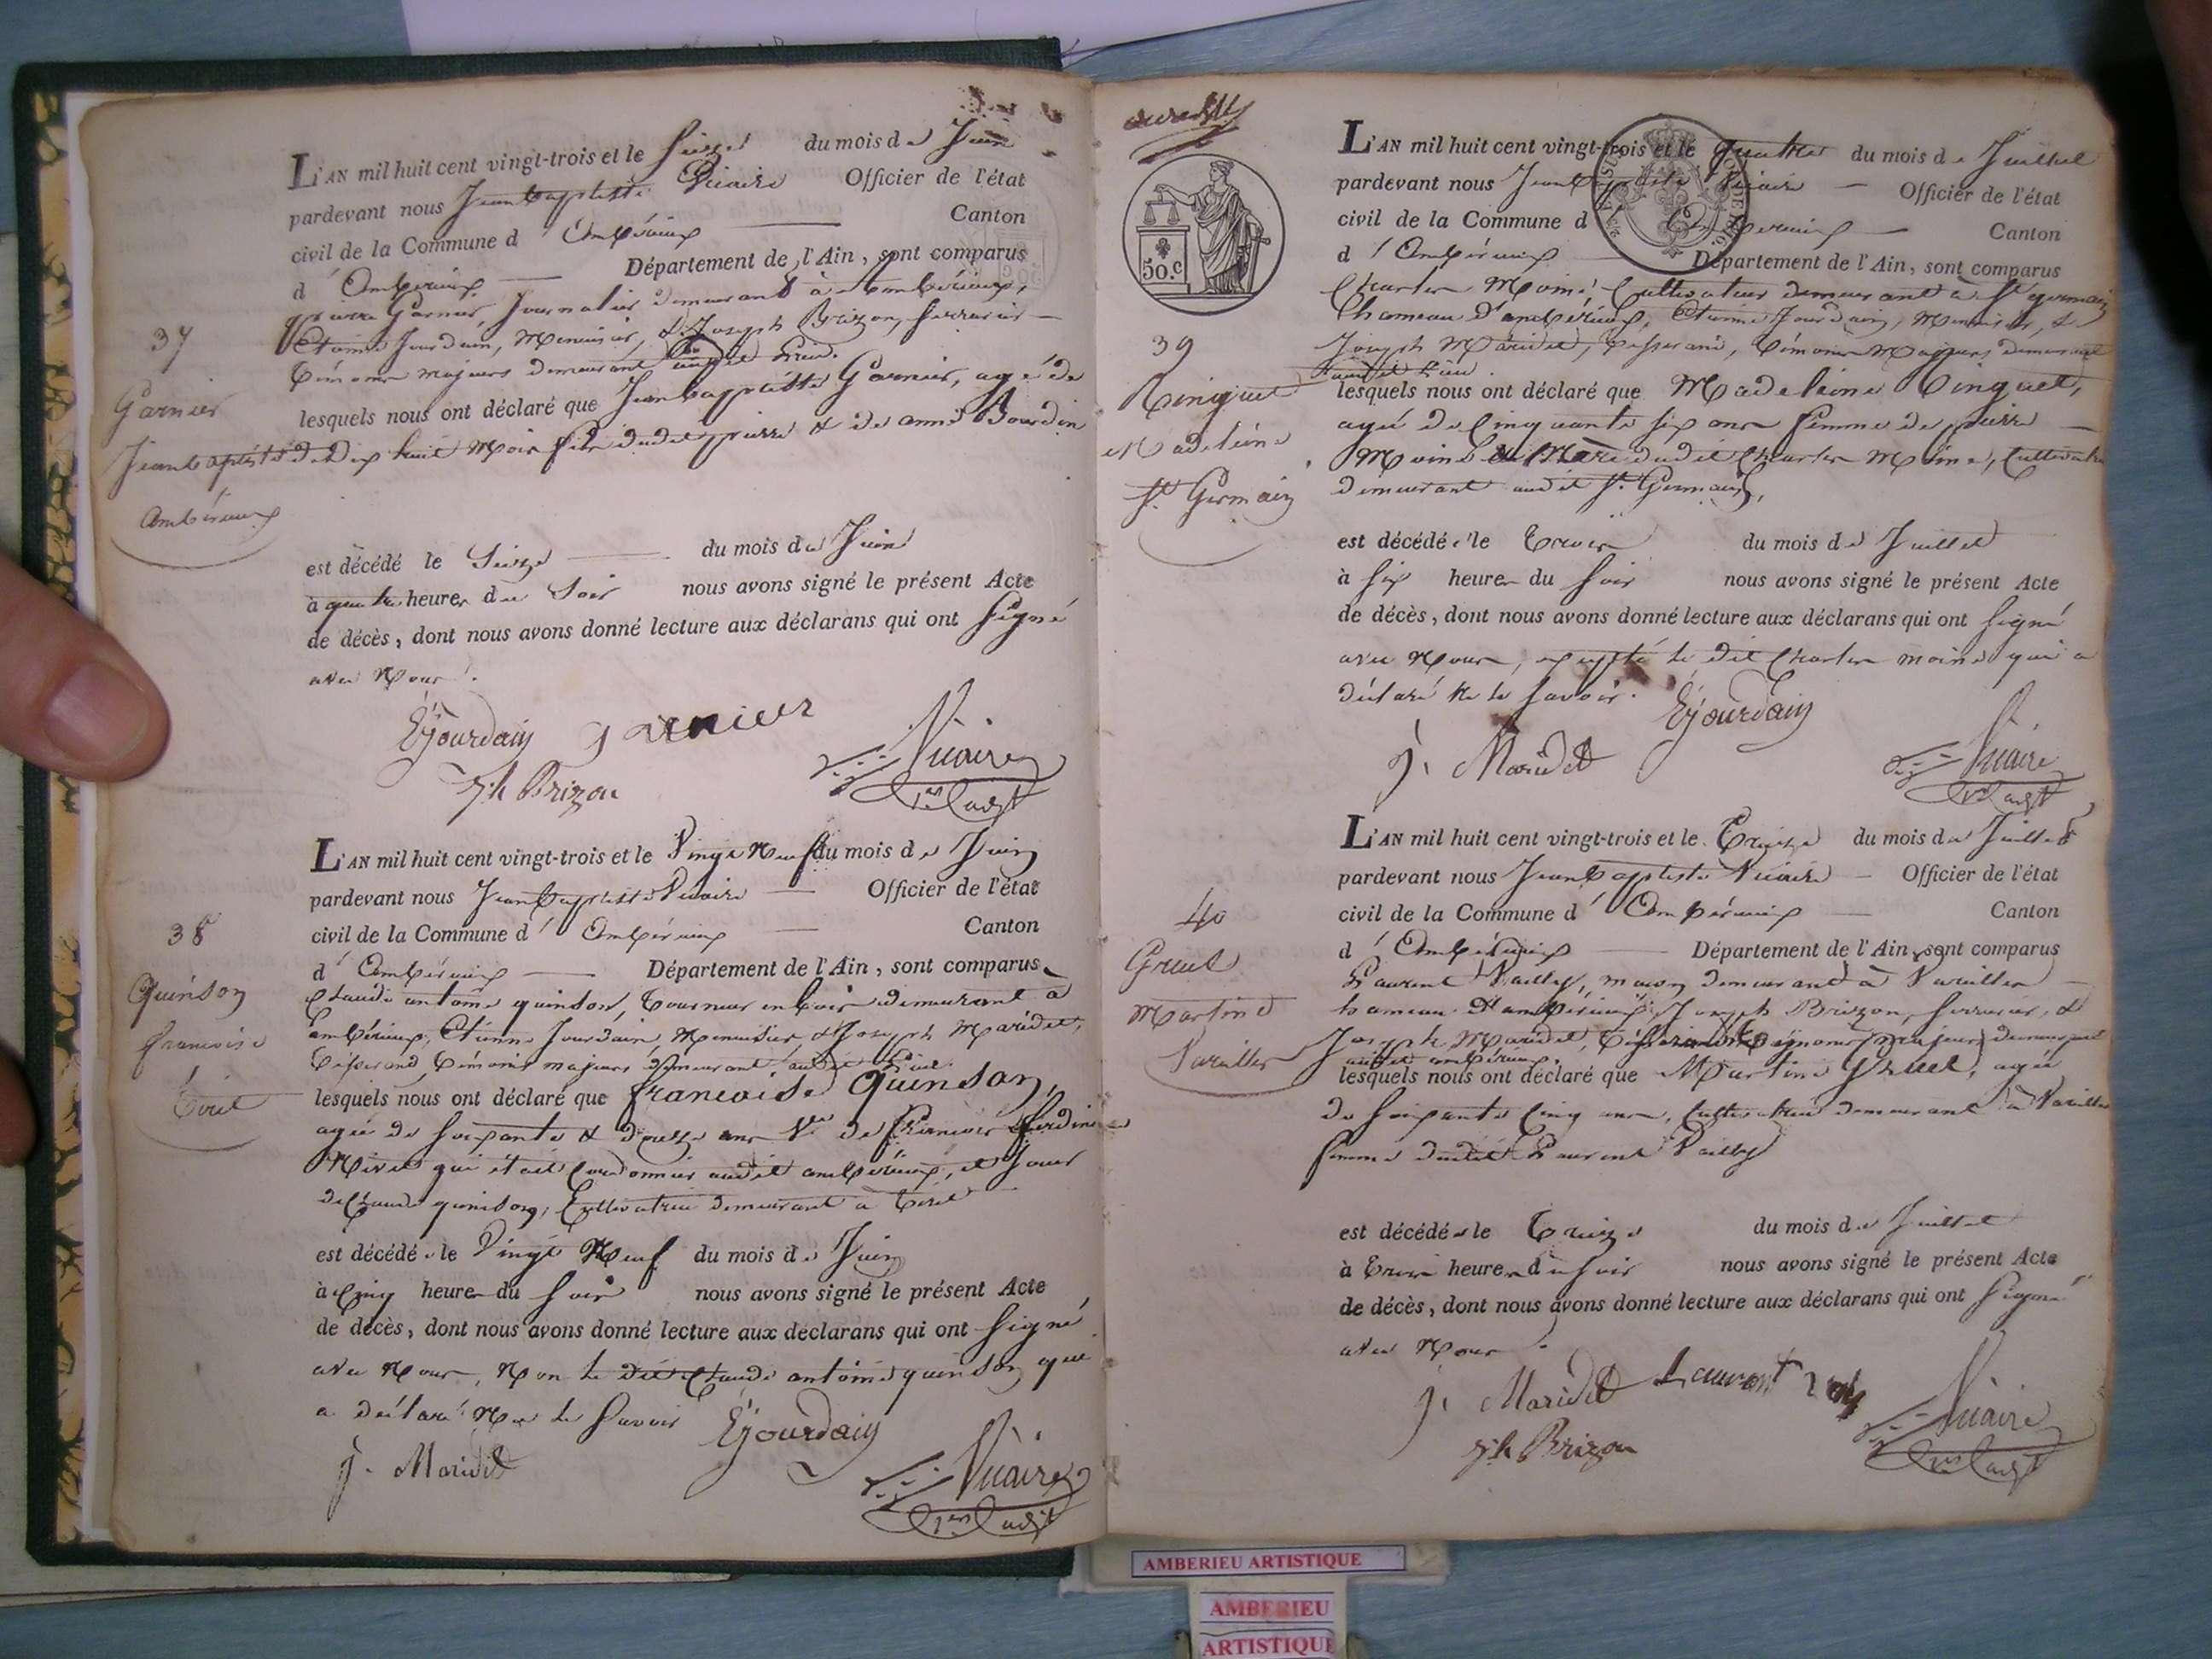 L'AN mil huit cent vingt-trois et le seize du mois de Juin
pardevant nous Jean baptiste Vicaire Officier de l'état
civil de la Commune d' Ambérieux Canton
d' Ambérieux Département de l'Ain, sont comparus
pierre Garnier, Journalier demeurant à ambérieux,
Etienne Jourdain, Menuisier, & Joseph Brizon, serrurier
témoins majeurs demeurant audit Lieu.
lesquels nous ont déclaré que Jean baptiste Garnier, agé de
de Dix huit Mois fils dudit pierre & de anne Bourdin
37
Garnier
Jean baptiste
Ambérieux
est décédé le Seize du mois de Juin
à quatre heures du Soir nous avons signé le présent Acte
de décès, dont nous avons donné lecture aux déclarans qui ont Signé
avec Nous.
EJourdain garnier
Jh Brizon Vicaire
L'AN mil huit cent vingt-trois et le Vingt Neuf du mois de Juin
pardevant nous Jean baptiste Vicaire Officier de l'état
civil de la Commune d' Ambérieux Canton
d' Ambérieux Département de l'Ain, sont comparus
Claude antoine quinson, tourneur en bois demeurant à
ambérieux, Etienne Jourdain, Menuisier, & Joseph Maridet,
tisserand, témoins majeurs demeurant audit Lieu.
lesquels nous ont déclaré que francoise Quinson,
agée de soixante & douze ans Ve de francois
qui était Cordonnier audit ambérieux, et soeur
de Claude quinson, Cultivatrice demeurant à Tiret
38
Quinson
francoise
Tiret
est décédée le Vingt Neuf du mois de Juin
à Cinq heures du soir nous avons signé le présent Acte
de décès, dont nous avons donné lecture aux déclarans qui ont signé
avec Nous, Non le dit Claude antoine quinson qui
a déclaré Ne le Savoir EJourdain
J. Maridet Vicaire
50.c
L'AN mil huit cent vingt-trois et le Quatre du mois de Juillet
pardevant nous Jean baptiste Vicaire Officier de l'état
civil de la Commune d' Ambérieux Canton
d' Ambérieux Département de l'Ain, sont comparus
Charles Moine Cultivateur demeurant à St germain
hameau d'ambérieux, Etienne Jourdain, Menuisier, &
Joseph Maridet, tisserand, témoins Majeurs demeurant
audit Lieu.
lesquels nous ont déclaré que Madeleine Tinguet,
agée de Cinquante six ans femme de pierre
Moine & Mère dudit Charles Moine, Cultivatrice
demeurant audit St Germain,
39
Tinguet
Madeleine
St Germain
est décédée le Trois du mois de Juillet
à six heures du soir nous avons signé le présent Acte
de décès, dont nous avons donné lecture aux déclarans qui ont signé
avec Nous, excepté le dit Charles moine qui a
déclaré Ne le savoir. EJourdain
J. Maridet Vicaire
L'AN mil huit cent vingt-trois et le Treize du mois de Juillet
pardevant nous Jean baptiste Vicaire Officier de l'état
civil de la Commune d' Ambérieux Canton
d' Ambérieux Département de l'Ain, sont comparus
Laurent Vailly, maçon demeurant à Vareilles
hameau d'ambérieux, Joseph Brizon, serrurier, &
Joseph Maridet, tisserand témoins majeurs demeurant
audit ambérieux.
lesquels nous ont déclaré que Martine Gruel, agée
de soixante Cinq ans, Cultivatrice demeurant à Vareilles
femme dudit Laurent Vailly
40
Gruel
Martine
Vareilles
est décédée le Treize du mois de Juillet
à Trois heures du soir nous avons signé le présent Acte
de décès, dont nous avons donné lecture aux déclarans qui ont Signé
avec Nous.
J. Maridet Laurent
Jh Brizon Vicaire
AMBERIEU ARTISTIQUE
AMBERIEU
ARTISTIQUE